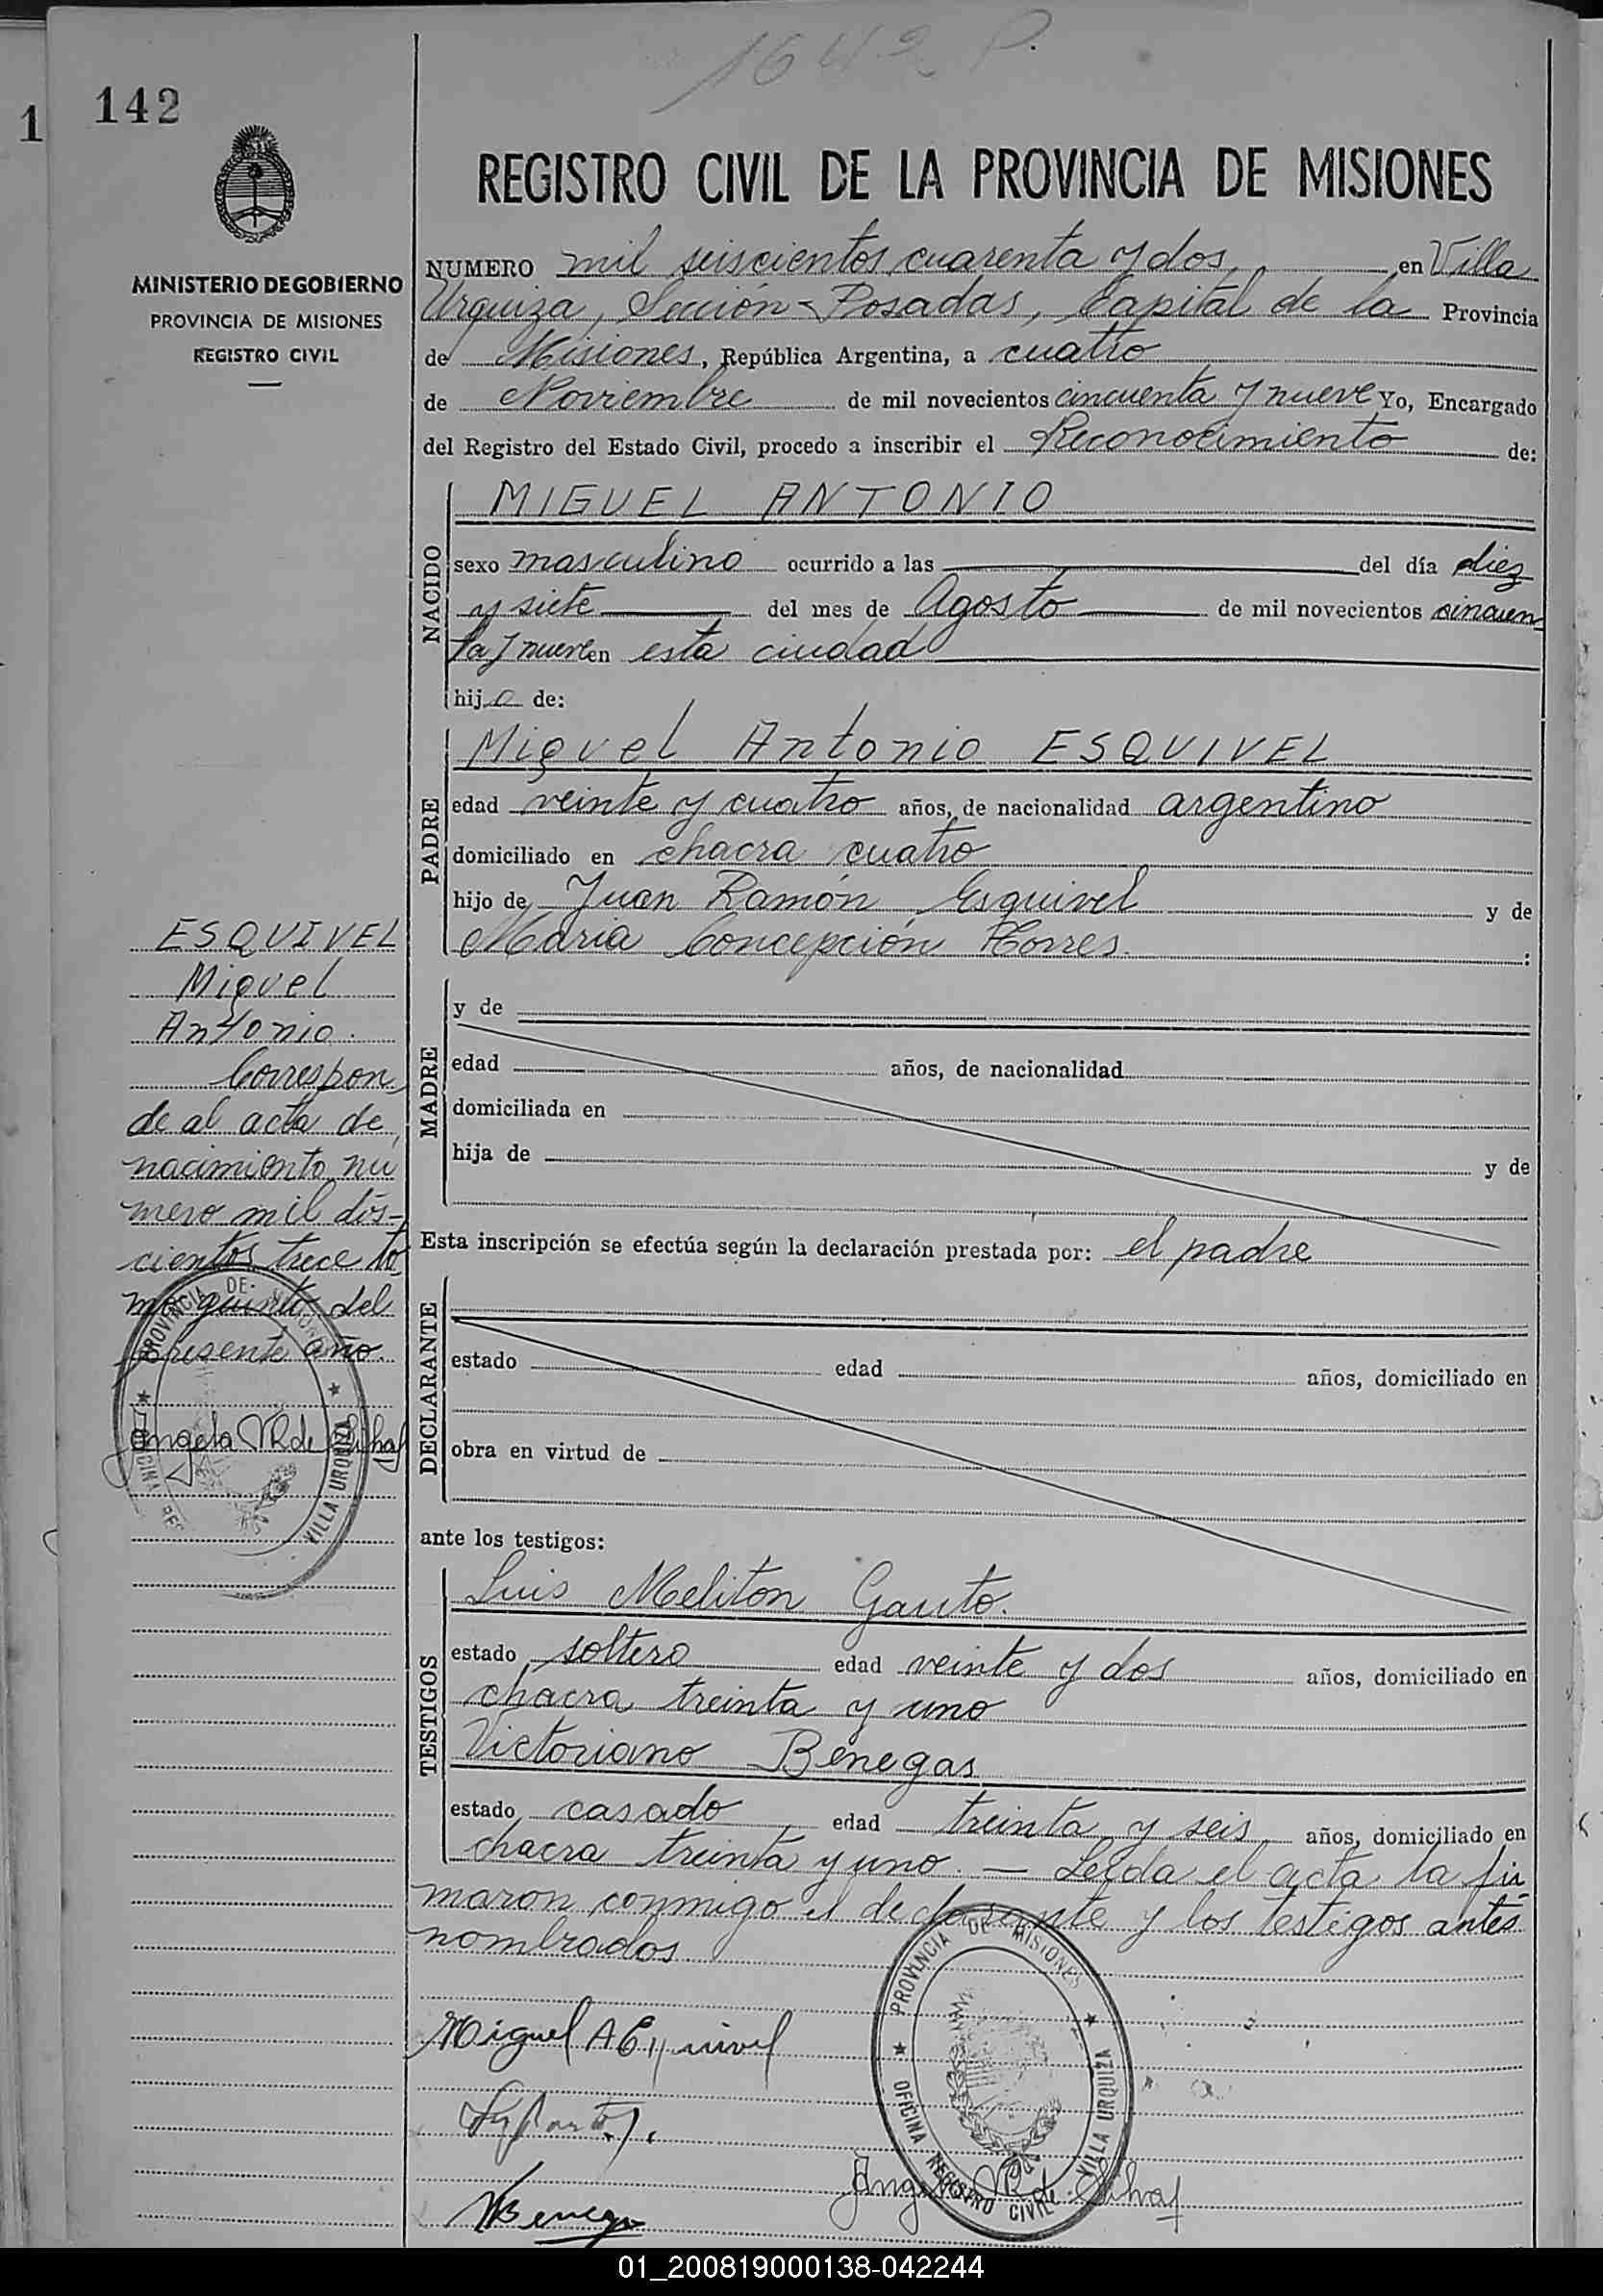 1642 P.
1
142
REGISTRO CIVIL DE LA PROVINCIA DE MISIONES
MINISTERIO DE GOBIERNO
PROVINCIA DE MISIONES
REGISTRO CIVIL
NUMERO mil seiscientos cuarenta y dos, en Villa
Urquiza, Sección - Posadas, Capital de la Provincia
de Misiones, República Argentina, a cuatro
de Noviembre de mil novecientos cincuenta y nueve Yo, Encargado
del Registro del Estado Civil, procedo a inscribir el Reconocimiento de:
NACIDO
MIGUEL ANTONIO
sexo masculino ocurrido a las del día diez
y siete del mes de Agosto de mil novecientos cincuen
ta y nueve en esta ciudad
hijo de:
PADRE
Miguel Antonio ESQUIVEL
edad veinte y cuatro años, de nacionalidad argentino
domiciliado en chacra cuatro
hijo de Juan Ramón Esquivel y de
Maria Concepción Torres. :
ESQUIVEL
Miguel
Antonio.
Correspon
de al acta de
nacimiento nú
mero mil dos-
cientos trece to
mo quinto del
presente año.
PROVINCIA DE MISIONES
OFICINA REG
VILLA URQUIZA
Angela R de
MADRE
y de
edad años, de nacionalidad
domiciliada en
hija de y de
Esta inscripción se efectúa según la declaración prestada por: el padre
DECLARANTE
estado edad años, domiciliado en
obra en virtud de
ante los testigos:
TESTIGOS
Luis Meliton Gauto.
estado soltero edad veinte y dos años, domiciliado en
chacra treinta y uno
Victoriano Benegas
estado casado edad treinta y seis años, domiciliado en
chacra treinta y uno. — Leída el acta la fir
maron conmigo el declarante y los testigos antes
nombrados
Miguel A Esquivel
VBenega
PROVINCIA DE MISIONES
OFICINA REGISTRO CIVIL
VILLA URQUIZA
01_200819000138-042244